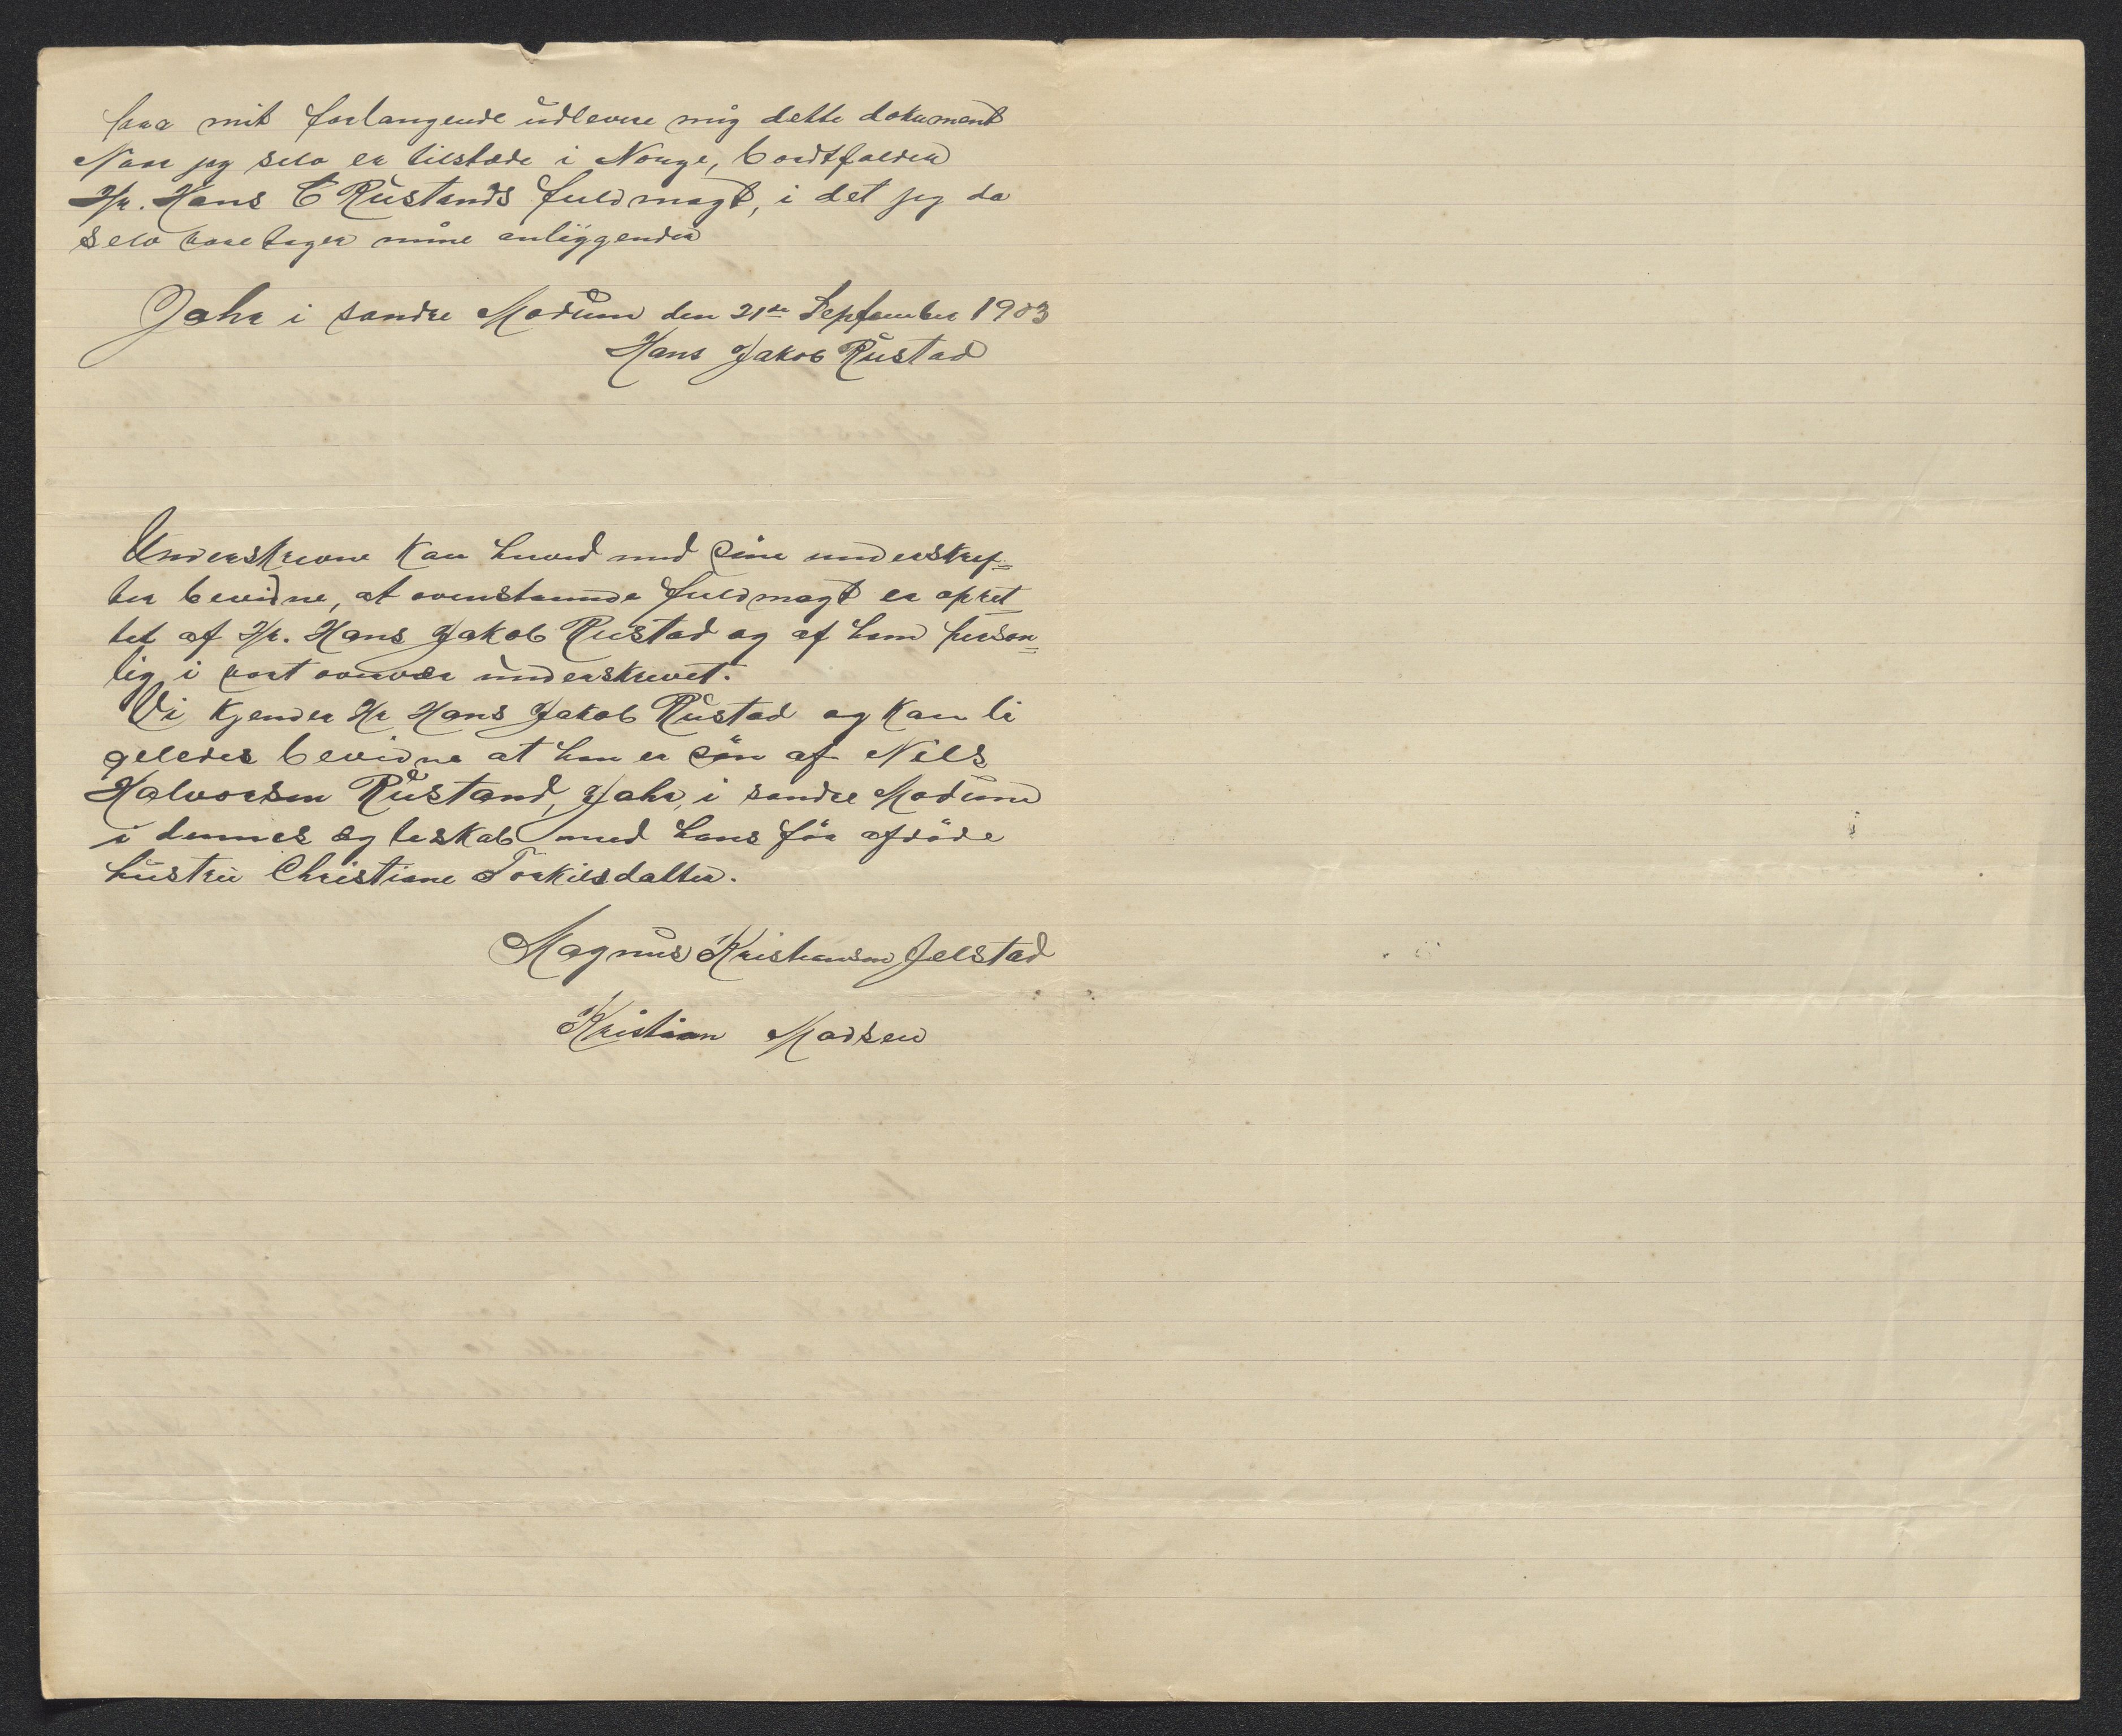 paa mit forlangende udlevere mig dette dokument
Naar jeg selv er tilstæde i Norge, bordtfalder
Hr. Hans C Rustands fuldmagt, i det jeg da
selv varetager mine anliggender
Jahr i søndre Modum den 21de September 1903
Hans Jakob Rustad
Underskrevne kan herved med sine underskrif=
ter bevidne, at ovenstaaende fuldmagt er opret
tet af Hr. Hans Jakob Rustad og af ham person=
lig i vort overvær underskrevet.
Vi kjender Hr Hans Jakob Rustad og kan li
geledes bevidne at han er søn af Nils
Halvorsen Rustand, Jahr, i søndre Modum
i dennes ægteskab med hans før afdøde
hustru Christiane Torkilsdatter.
Magnus Kristiansen Jelstad
Kristian Madsen